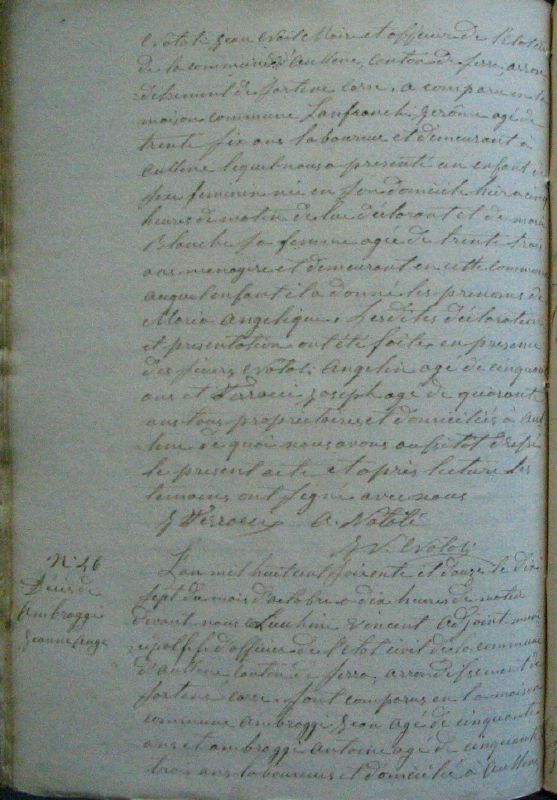 Jean Maire et officier de l'état
de la commune d'aullene, canton de serra, arron
dissement de sartene Corse, a comparu en la
maison commune Lanfranchi Jerôme agé de
trente six ans laboureur et demeurant à
aullene lequel nous a presenté un enfant du
sexe feminin né en son domicile hier a cinq
heures du matin de lui déclarant et de maria
Blanche sa femme agée de trente trois
ans menagere et demeurant en cette commune
auquel enfant il a donné les prenoms de
Maria Angelique. Lesdites déclaration
et presentation ont été faites en presence
des sieurs Angelin agé de cinquante
ans et Joseph agé de quarante
ans tous proprietaires et domiciliés à aul
lene de quoi nous avons aussitot dressé
le present acte et après lecture les
temoins ont signé avec nous
N° 46
Décès de
Ambroggi
Jeanne
L'an mil huit cent soixante et douze le dix
sept du mois d'octobre a dix heures du matin
devant nous Vincent adjoint
d'officier de l'etat civil de la commune
d'aullene canton de serra, arrondissement de
sartene corse, sont comparus en la maison
commune Ambroggi Jean agé de cinquante
ans et ambroggi antoine agé de cinquante
trois ans laboureurs et domicilié à aullene